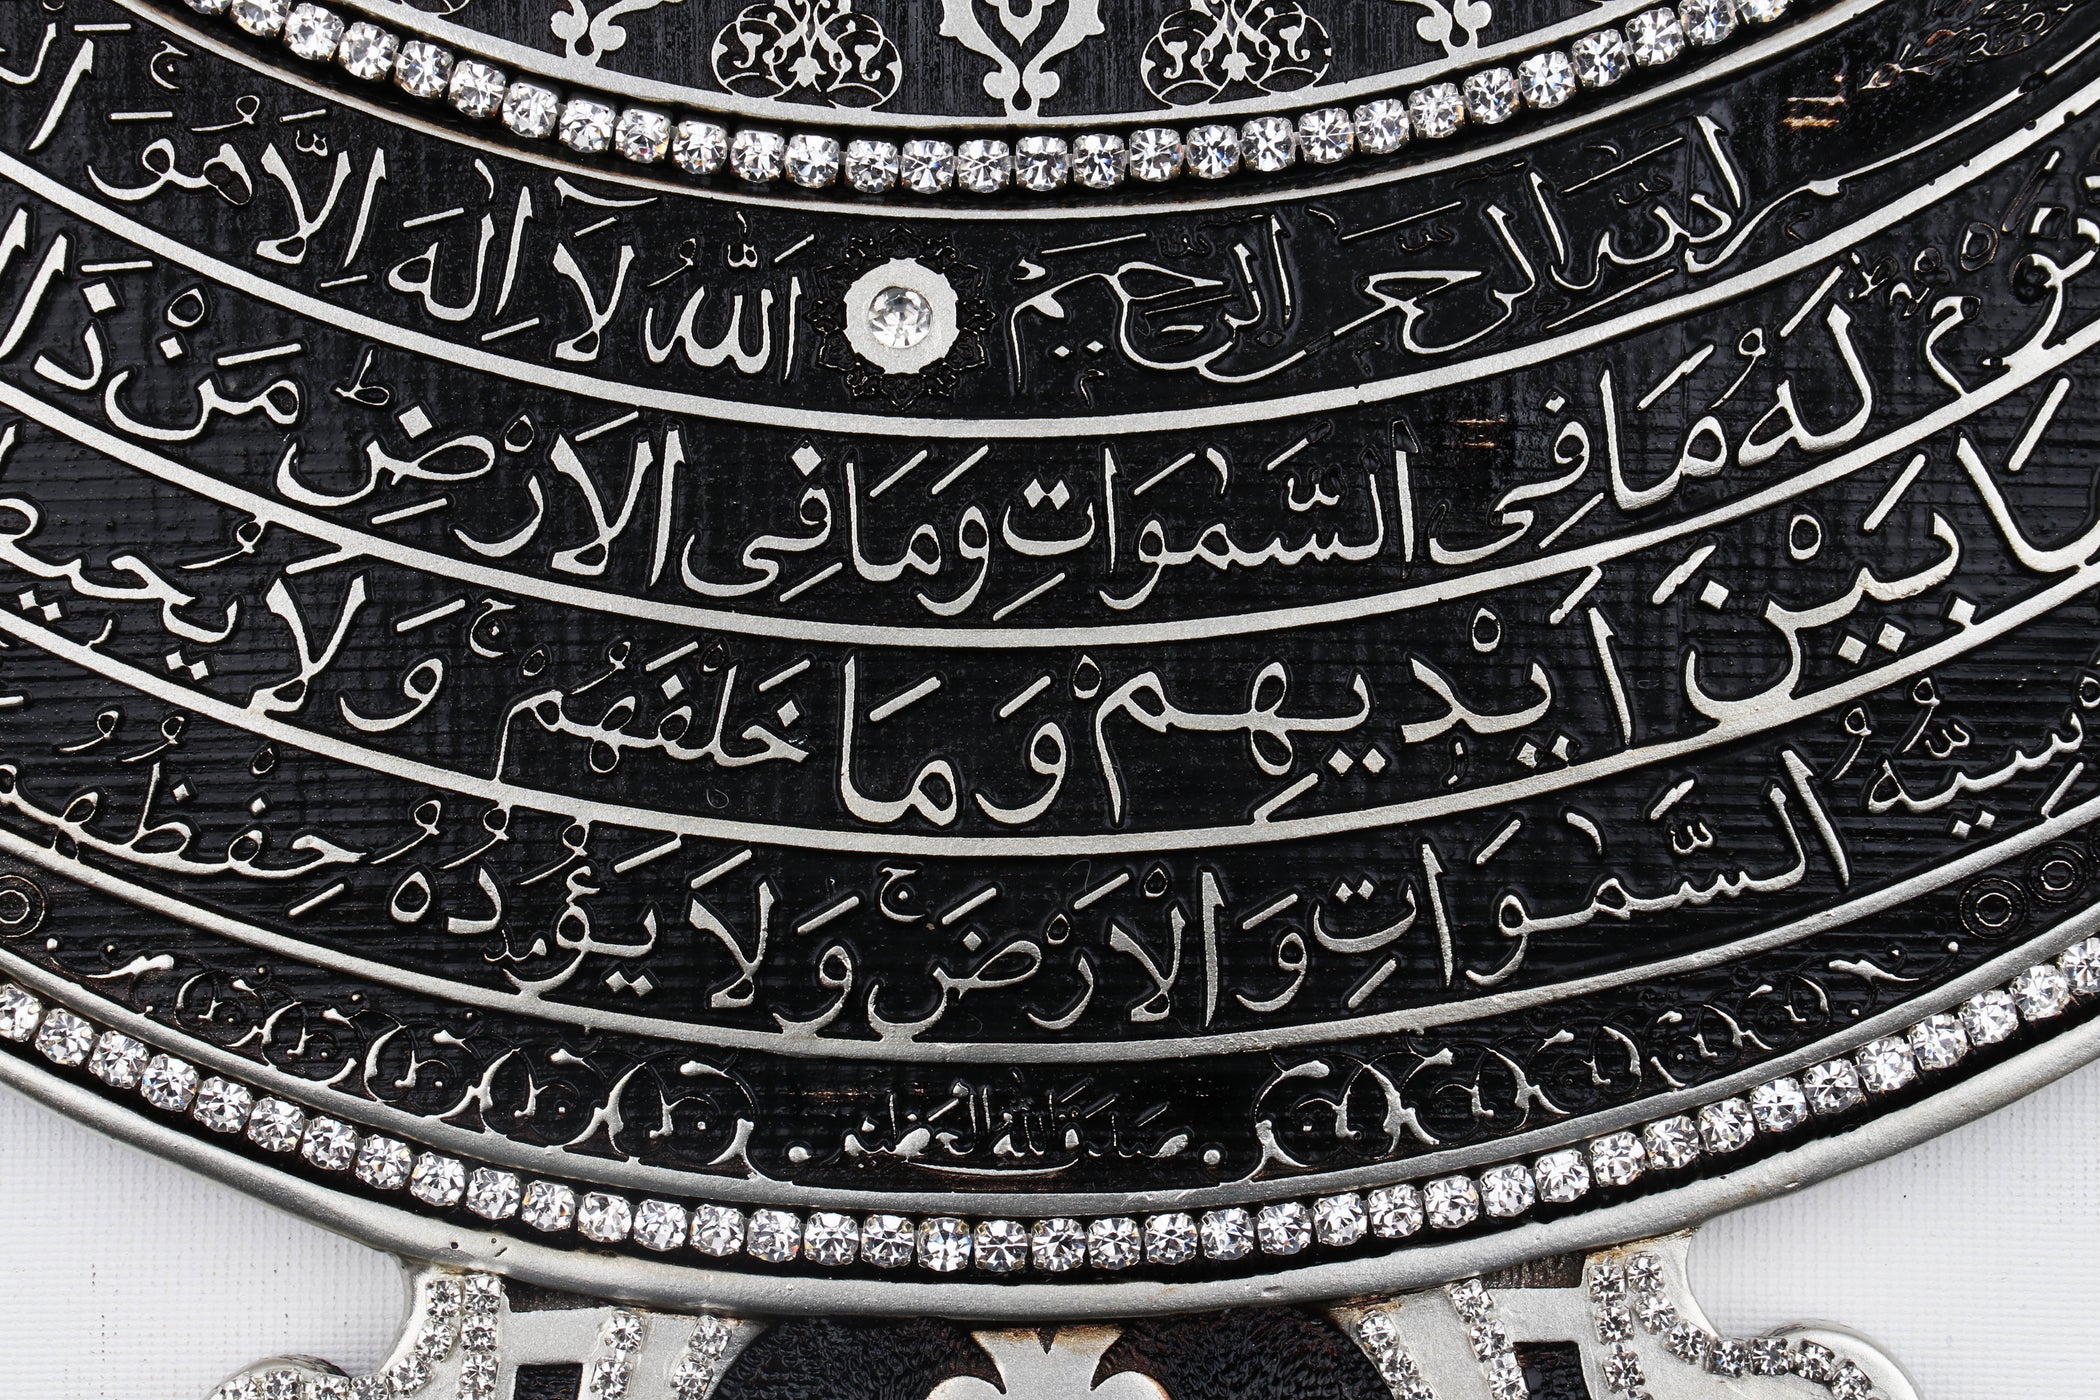 اللّٰهِ الرَّحْمٰنِ الرَّحِيمِ اَللّٰهُ لَآ اِلٰهَ اِلَّا هُوَۚ
نَوْمٌۜ لَهُ مَا فِى السَّمٰوَاتِ وَمَا فِى الْاَرْضِۜ مَنْ ذَا
مَا بَيْنَ اَيْدِيهِمْ وَمَا خَلْفَهُمْۚ وَلَا يُحِيطُ
السَّمٰوَاتِ وَالْاَرْضَۚ وَلَا يَؤُدُهُ حِفْظُهُمَا
صَدَقَ اللّٰهُ الْعَظِيمُ